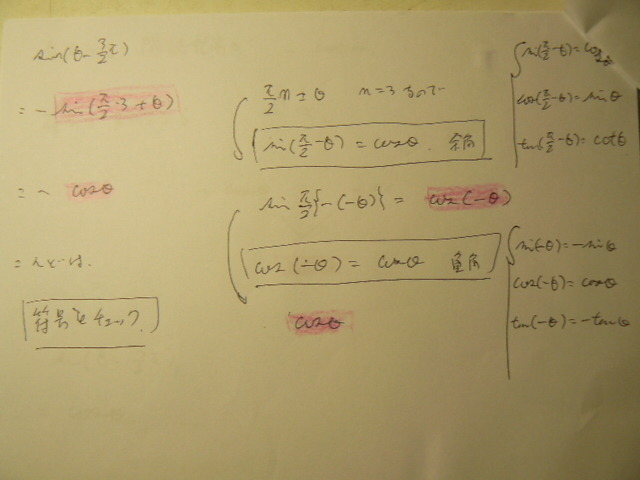 sin(θ-3/2π)
= - sin(π/2・3+θ)
= - cosθ
符号をチェック
π/2 n ± θ n=3 なので
sin(π/2-θ) = cosθ. 余角
sin π/2{-(-θ)} = cos(-θ)
cos(-θ) = cosθ 負角
cosθ
sin(π/2-θ)=cosθ
cos(π/2-θ)=sinθ
tan(π/2-θ)=cotθ
sin(-θ)=-sinθ
cos(-θ)=cosθ
tan(-θ)=-tanθ